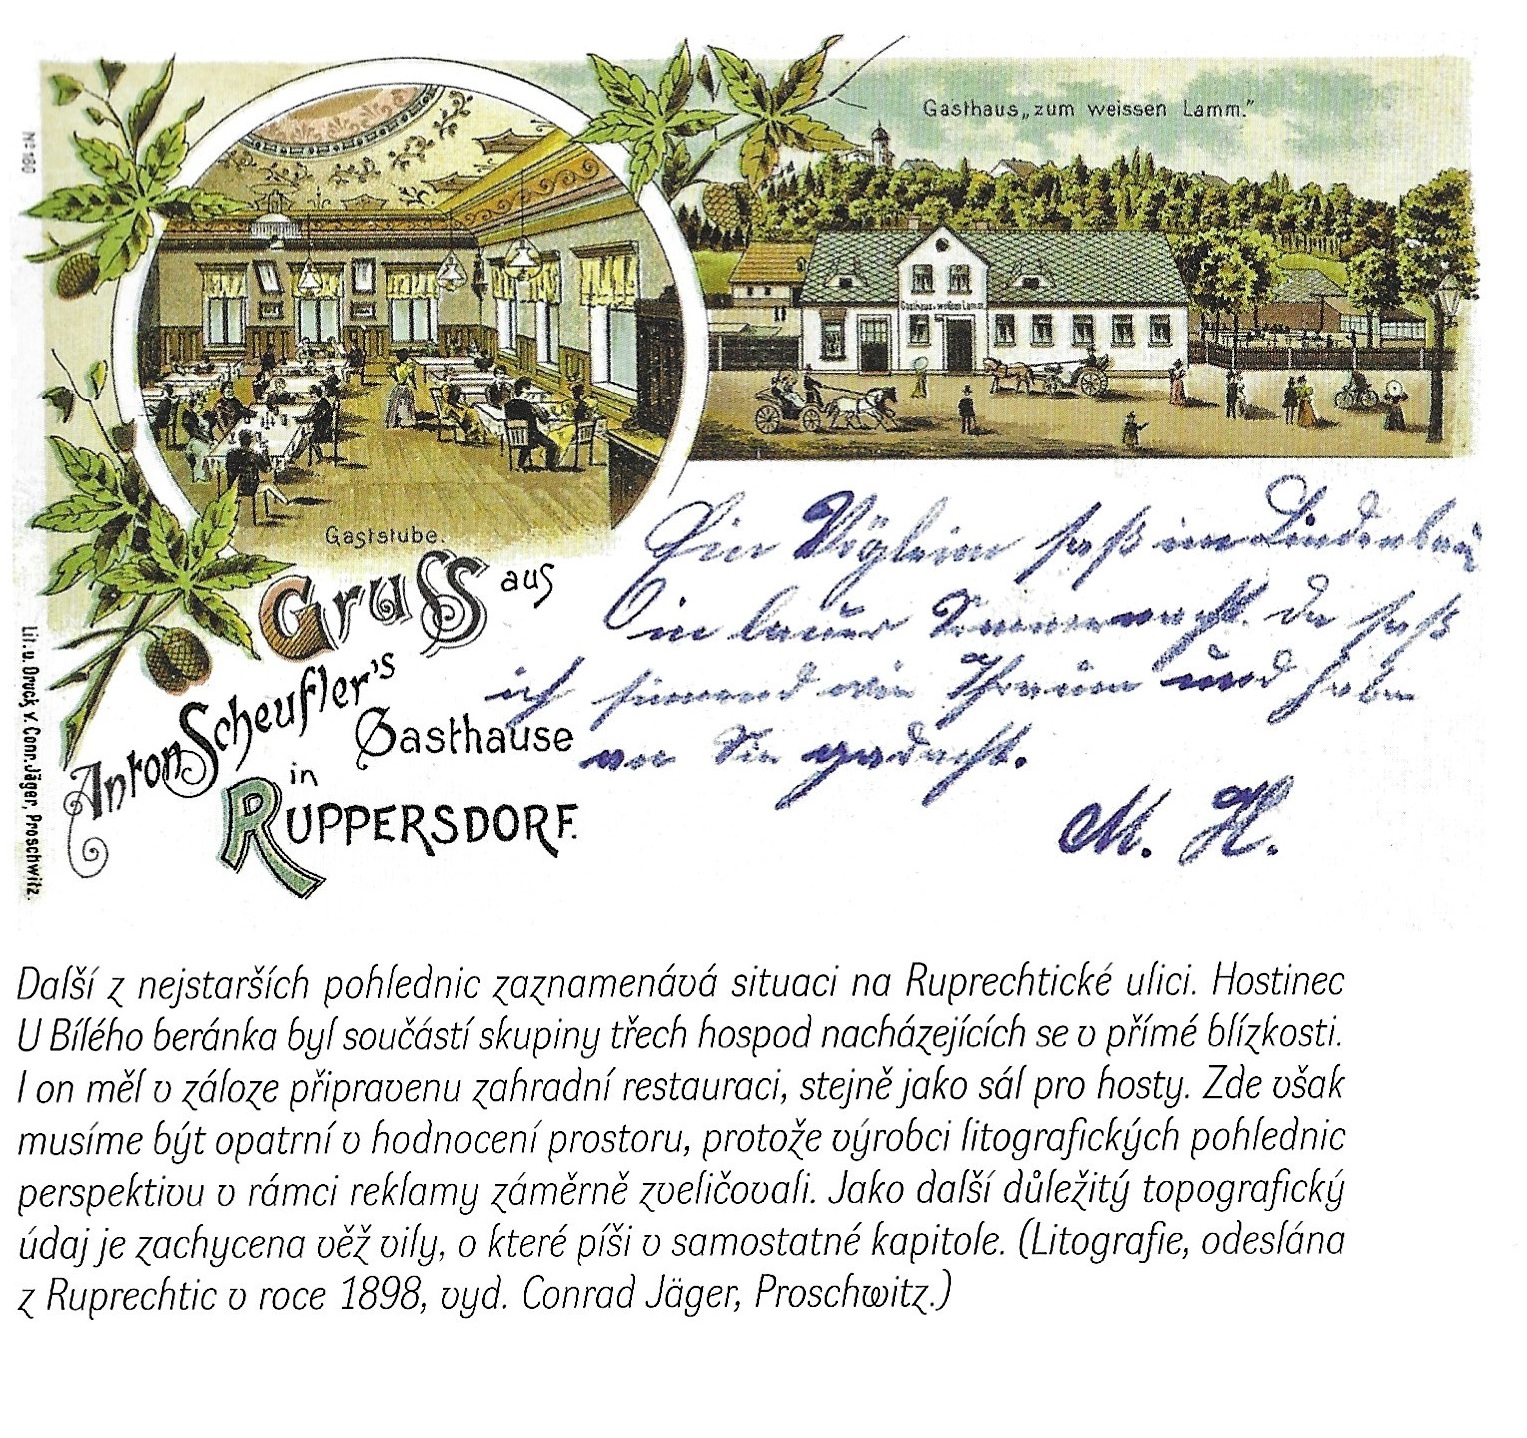 No 180
Gasthaus „zum weissen Lamm.”
Gasthaus z. weissen Lamm.
Gaststube.
Gruss aus
Anton Scheufler's
Gasthause
in
Ruppersdorf.
Lit. u. Druck v. Conr. Jäger, Proschwitz.
Ein Vöglein saß im Lindenbaum
in lauer Sommernacht. da saß
ich sinnend wie Traum und habe
an Sie gedacht.
M. H.
Další z nejstarších pohlednic zaznamenává situaci na Ruprechtické ulici. Hostinec
U Bílého beránka byl součástí skupiny třech hospod nacházejících se v přímé blízkosti.
I on měl v záloze připravenu zahradní restauraci, stejně jako sál pro hosty. Zde však
musíme být opatrní v hodnocení prostoru, protože výrobci litografických pohlednic
perspektivu v rámci reklamy záměrně zveličovali. Jako další důležitý topografický
údaj je zachycena věž vily, o které píši v samostatné kapitole. (Litografie, odeslána
z Ruprechtic v roce 1898, vyd. Conrad Jäger, Proschwitz.)